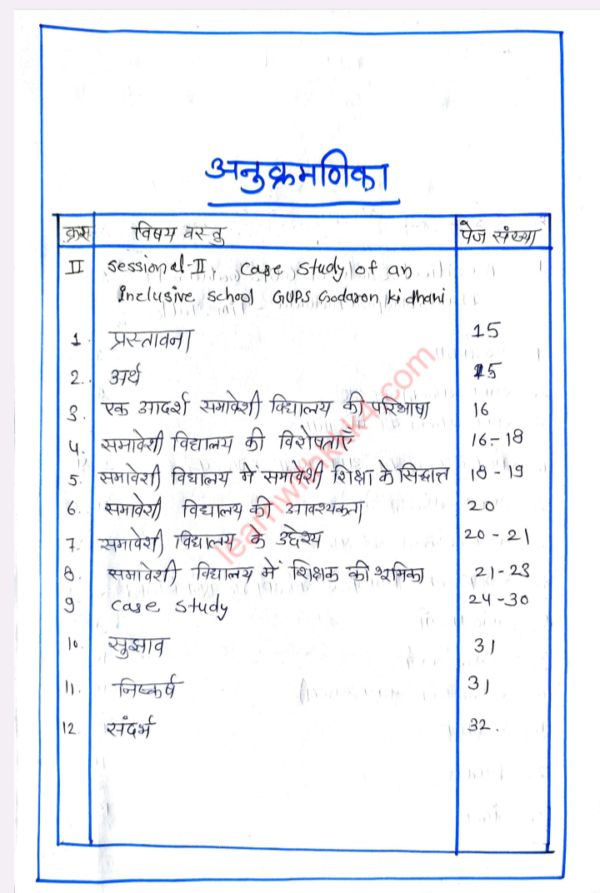 अनुक्रमणिका
क्रस विषय वस्तु पेज संख्या
II Sessional-II, Case Study of an
Inclusive school GUPS Godaron ki dhani
1. प्रस्तावना 15
2. अर्थ 15
3. एक आदर्श समावेशी विद्यालय की परिभाषा 16
4. समावेशी विद्यालय की विशेषताएँ 16-18
5. समावेशी विद्यालय में समावेशी शिक्षा के सिद्धान्त 18-19
6. समावेशी विद्यालय की आवश्यकता 20
7. समावेशी विद्यालय के उद्देश्य 20-21
8. समावेशी विद्यालय में शिक्षक की भूमिका 21-23
9 Case Study 24-30
10. सुझाव 31
11. निष्कर्ष 31
12. संदर्भ 32.
learnwithkkk4.com